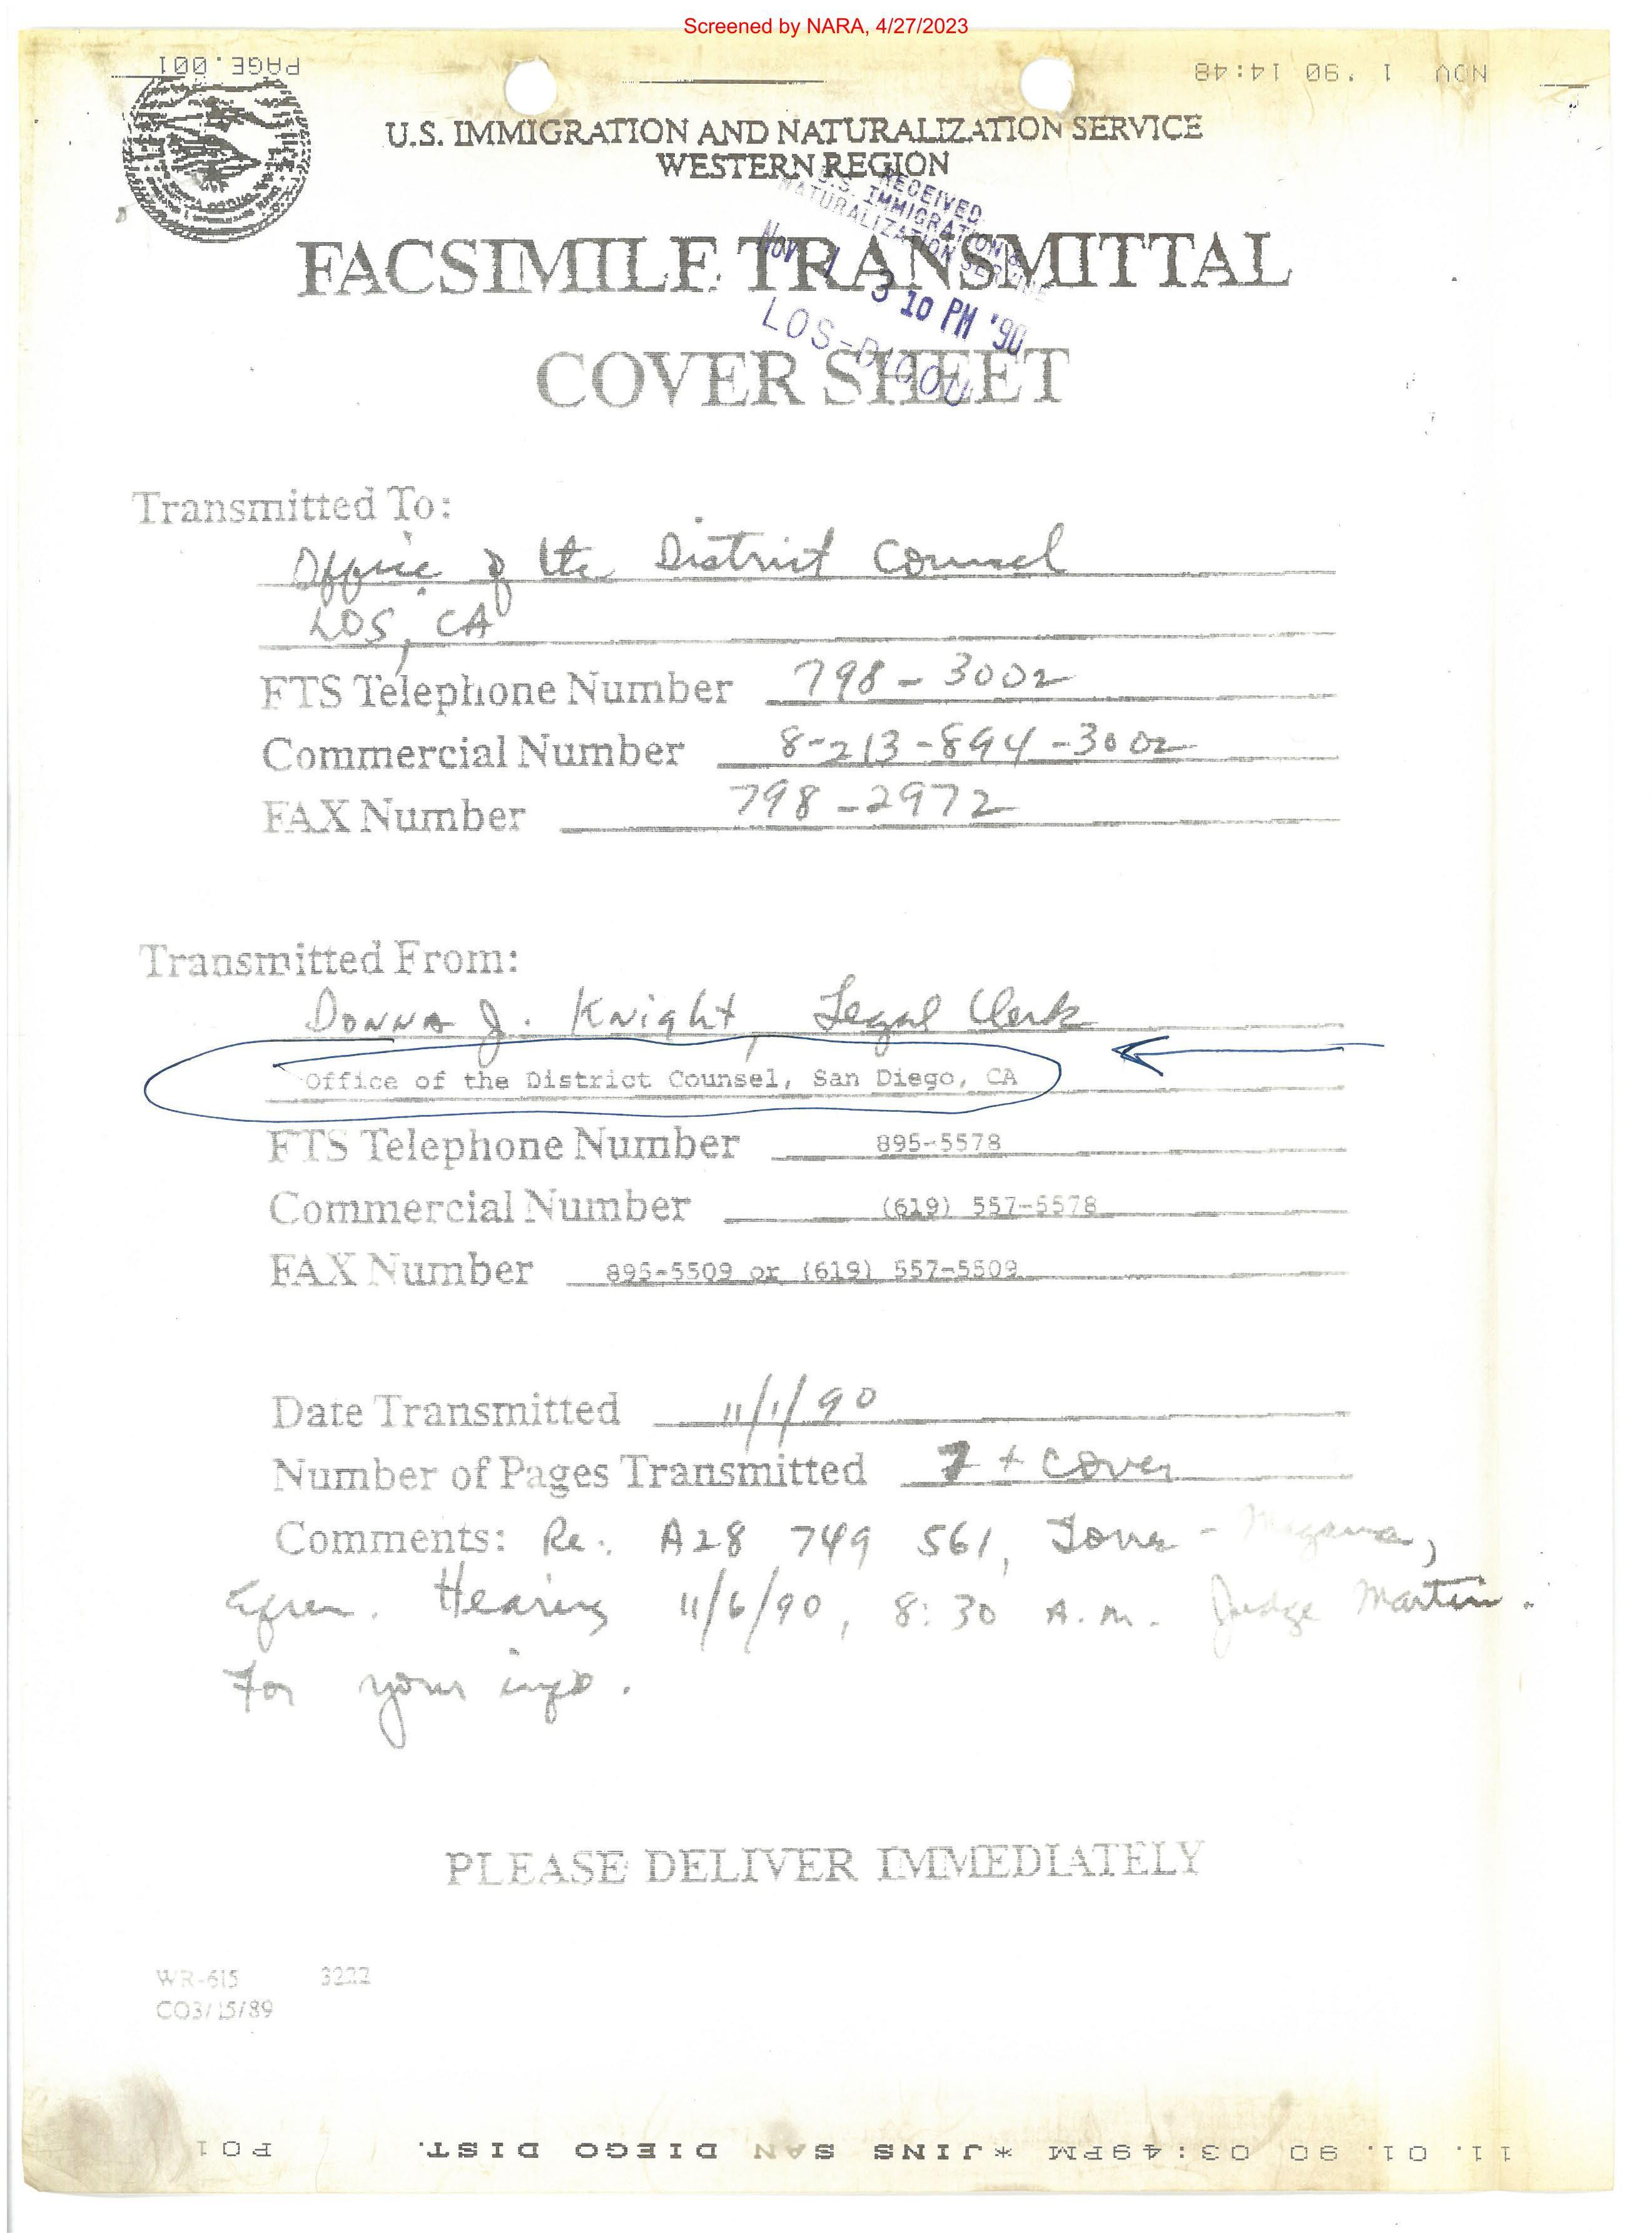 Screened by NARA, 4/27/2023
PAGE.001 NOV 1 '90 14:48
U.S. IMMIGRATION AND NATURALIZATION SERVICE
WESTERN REGION
RECEIVED
U.S. IMMIGRATION &
NATURALIZATION SERVICE
NOV 1 3 10 PM '90
FACSIMILE TRANSMITTAL
COVER SHEET
Transmitted To:
Office of the District Counsel
LOS, CA
FTS Telephone Number 798-3002
Commercial Number 8-213-894-3002
FAX Number 798-2972
Transmitted From:
Donna J. Knight, Legal Clerk
Office of the District Counsel, San Diego, CA
FTS Telephone Number 895-5578
Commercial Number (619) 557-5578
FAX Number 895-5509 or (619) 557-5509
Date Transmitted 11/1/90
Number of Pages Transmitted 7 + cover
Comments: Re: A28 749 561,
Efren. Hearing 11/6/90, 8:30 A.M. Judge Martin.
For your info.
PLEASE DELIVER IMMEDIATELY
WR-615 3222
CO3/15/89
11. 01. 90 03:49PM *JINS SAN DIEGO DIST. P01